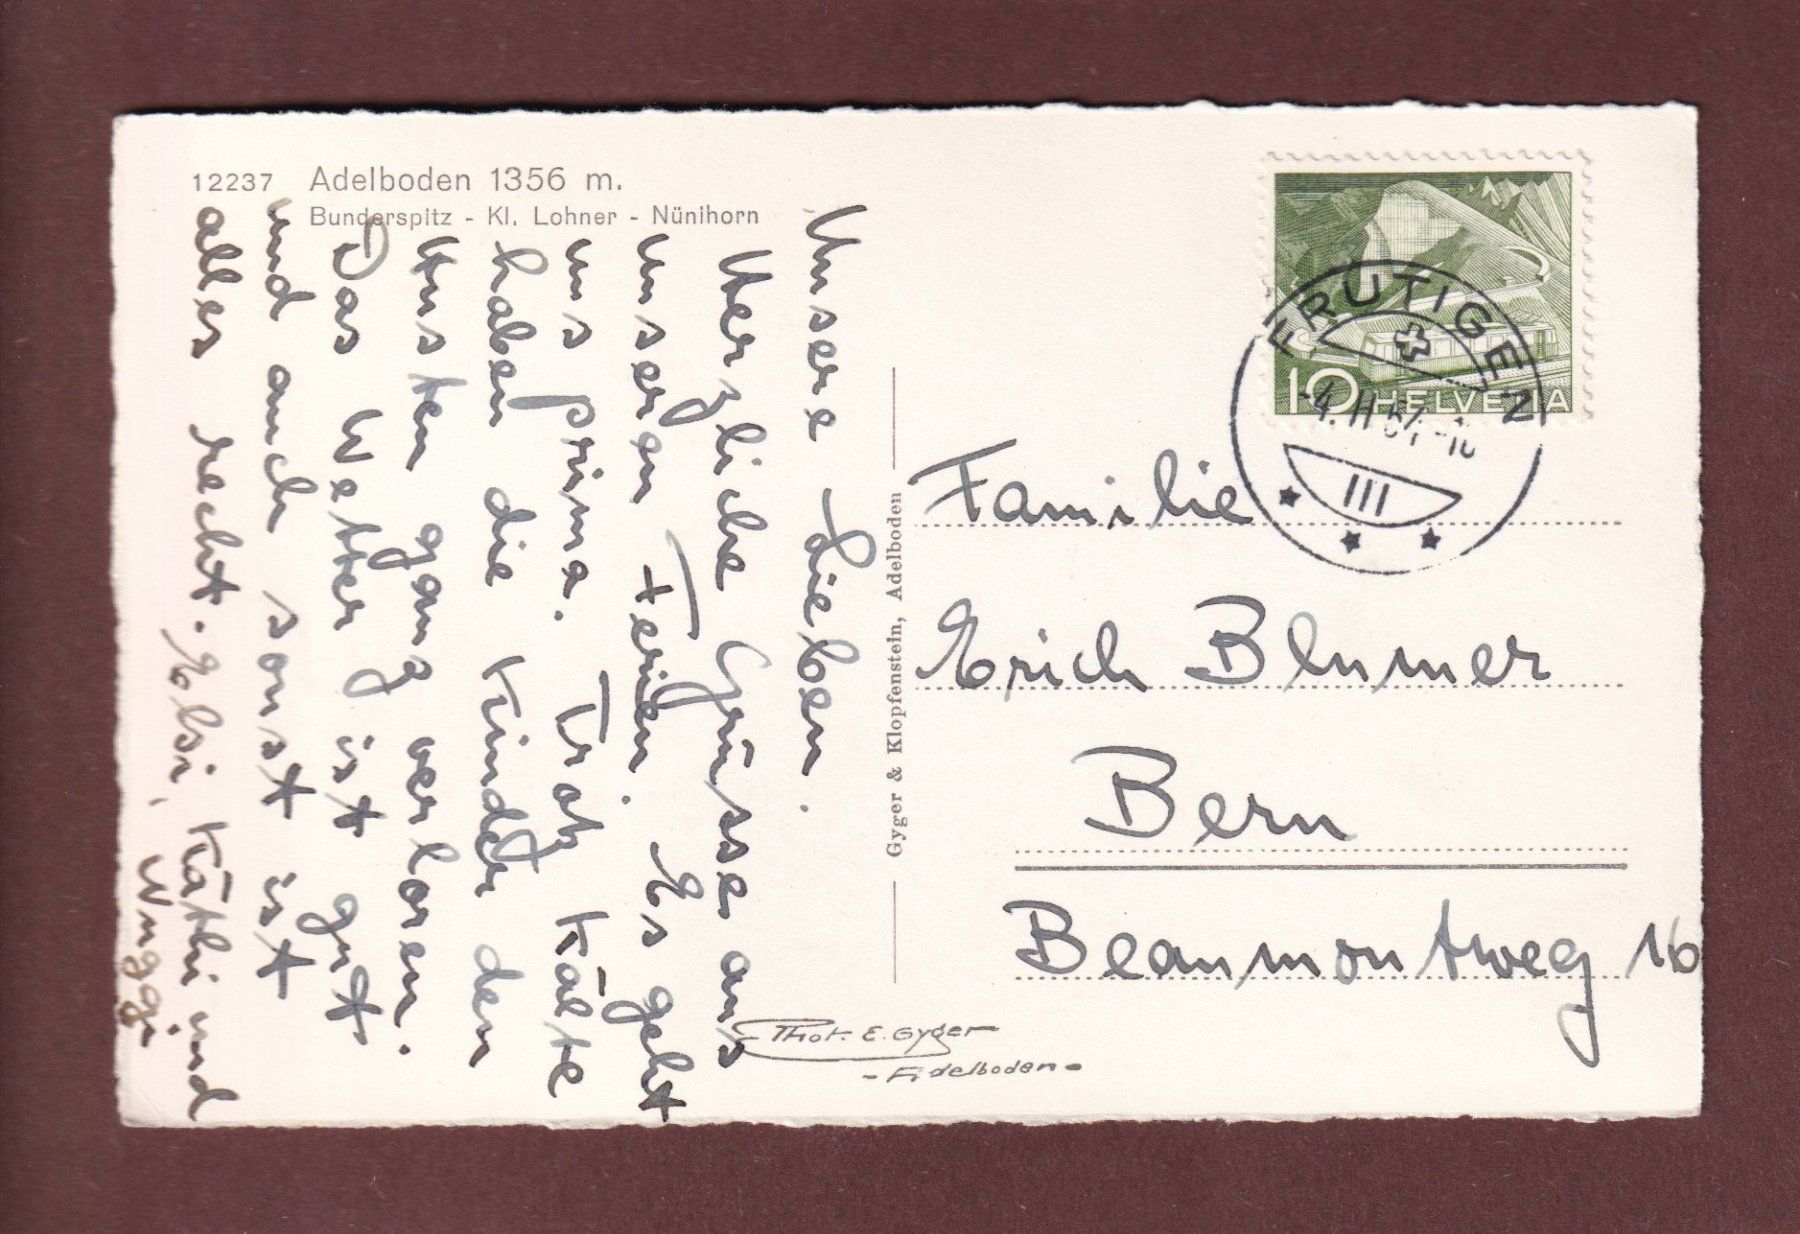 12237 Adelboden 1356 m.
Bunderspitz - Kl. Lohner - Nünihorn
Unsere Lieben.
Herzliche Grüsse aus
unseren Ferien. Es geht
uns prima. Trotz Kälte
haben die Kinder den
Husten ganz verloren.
Das Wetter ist gut
und auch sonst ist
alles recht. Elsi, Käthi und
Nuggi
Gyger & Klopfenstein, Adelboden
10 HELVETIA
FRUTIGEN
-4. II 54 -18
III
Familie
Erich Blumer
Bern
Beaumontweg 16
Phot. E. Gyger
- Adelboden -